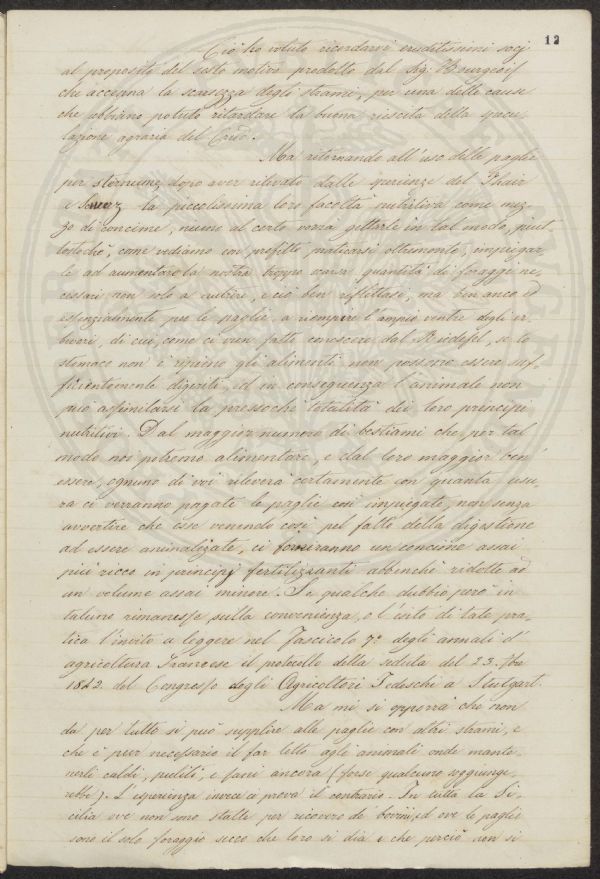 12
Ciò ho voluto ricordarvi eruditissimi socj
al proposito del sesto motivo prodotto dal Sig: Bourgeois
che accenna la scarsezza degli strami, per una delle cause
che abbiano potuto ritardare la buona riescita della specu-
lazione agraria del
Ma ritornando all'uso delle paglie
per sternume dopo aver rilevato dalle sperienze del Thair
e la piccolissima loro facoltà nutritiva come mez-
zo di concime, niuno al certo vorrà gittarle in tal modo, piut-
tostochè, come vediamo con profitto praticarsi oltremonte, impiegar-
le ad aumentare la nostra troppo scarsa quantità di foraggi ne-
cessari non solo a nutrire, e ciò ben riflettasi, ma ben anco ed
essenzialmente per le paglie a riempire l'ampio ventre degli er-
bivori, di cui, come ci vien fatto conoscere dal Riedesel, se lo
stomaco non è ripieno gli alimenti non possono essere suf-
ficientemente digeriti, ed in conseguenza l'animale non
può assimilarsi la pressochè totalità dei loro principi
nutritivi. Dal maggior numero di bestiami che per tal
modo noi potremo alimentare, e dal loro maggior ben'
essere, ognuno di voi rileverà certamente con quanta usu-
ra ci verranno pagate le paglie così impiegate, non senza
avvertire che esse venendo così pel fatto della digestione
ad essere animalizate, ci forniranno un concime assai
più ricco in principj fertilizzanti abbenchè ridotte ad
un volume assai minore. Se qualche dubbio però in
taluno rimanesse sulla convenienza, e l'esito di tale pra-
tica l'invito a leggere nel Fascicolo 7º degli annali d'
agricoltura Francese il protocollo della seduta del 23. 7bre
1842 del Congresso degli Agricoltori Tedeschi a Stutgart.
Ma mi si opporrà che non
da per tutto si può supplire alle paglie con altri strami, e
che è pur necessario il far letto agli animali onde mante-
nerli caldi, puliti, e sani ancora (forse qualcuno soggiunge-
rebbe). L'esperienza invece ci prova il contrario. In tutta la Si-
cilia ove non sono stalle per ricovero de' bovini, ed ove le paglie
sono il solo foraggio secco che loro si dia e che perciò non si